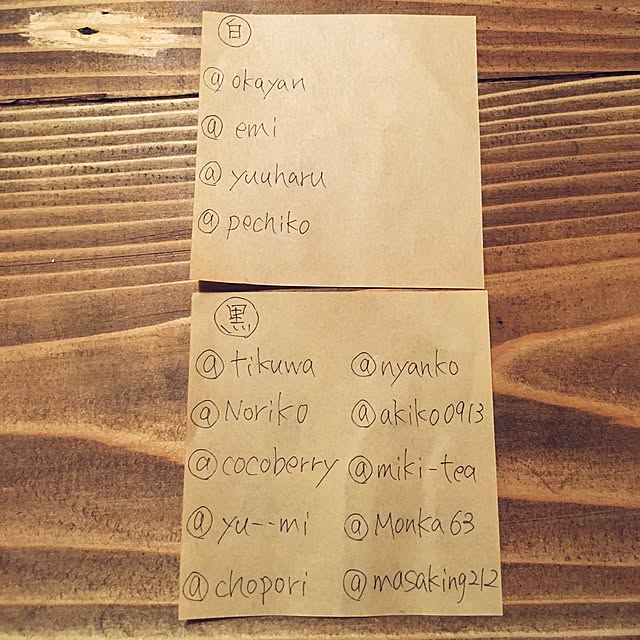 白
@okayan
@emi
@yuuharu
@pechiko
黒
@tikuwa @nyanko
@Noriko @akiko0913
@cocoberry @miki-tea
@yu--mi @Monka63
@chopori @masaking212